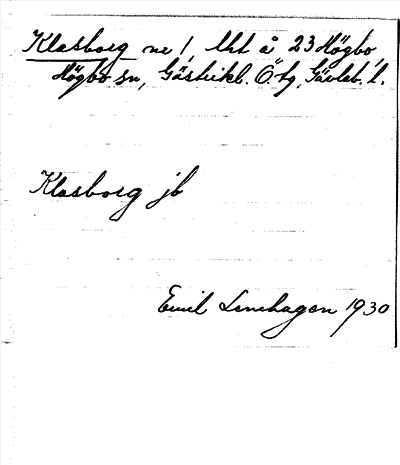 Klasborg ne!, lht å 23 Högbo,
Högbo sn, Gästrikl. Ö. tg, Gävleb. l.
Klasborg jb
Emil Linehagen 1930